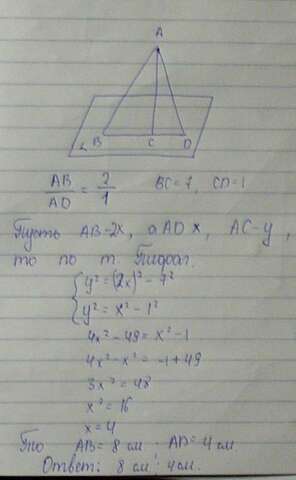 A
B C D
α
AB/AD = 2/1 BC=7, CD=1
Пусть AB-2x, а AD x, AC-y,
то по т. Пифаг.
{ y² = (2x)² - 7²
{ y² = x² - 1²
4x² - 49 = x² - 1
4x² - x² = -1 + 49
3x² = 48
x² = 16
x = 4
AB = 8 см AD = 4 см
Ответ: 8 см; 4 см.